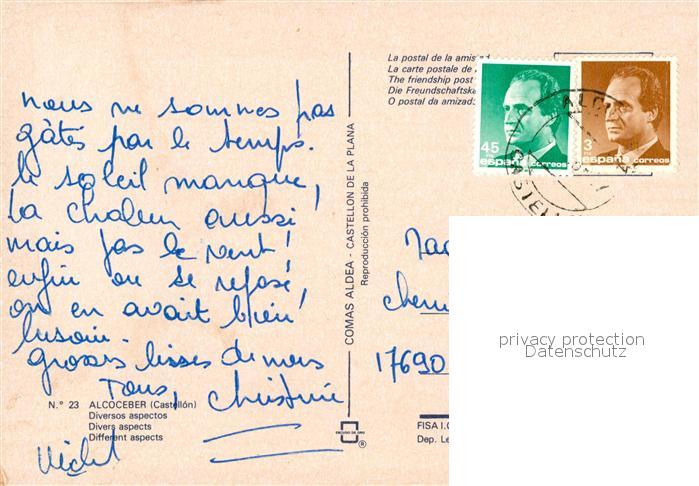 nous ne sommes pas
gâtés par le temps.
le soleil manque,
la chaleur aussi
mais pas le vent!
enfin on se repose,
on en avait bien
besoin.
grosses bisses de nous
Tous, Christine
Michel
N.° 23 ALCOCEBER (Castellón)
Diversos aspectos
Divers aspects
Different aspects
COMAS ALDEA - CASTELLON DE LA PLANA
Reproducción prohibida
ESCUDO DE ORO
®
La postal de la amis
La carte postale de
The friendship post
Die Freundschaftska
O postal da amizad
45
españa correos
3
españa correos
17690
FISA I.G
Dep. Le
privacy protection
Datenschutz